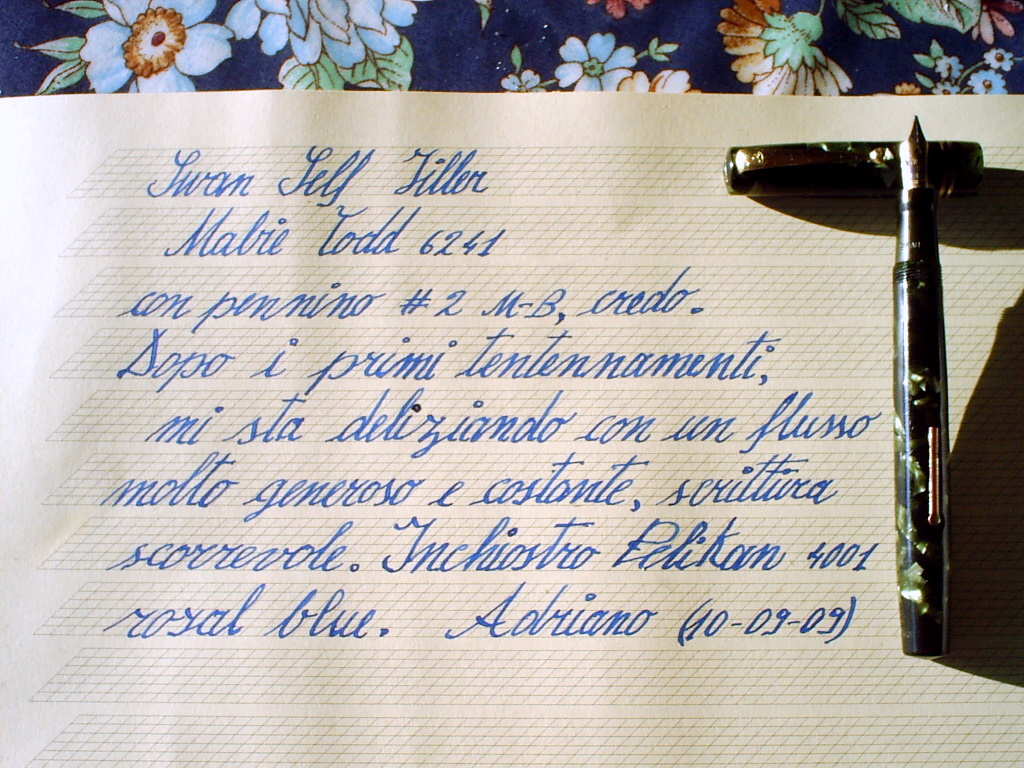 Swan Self Filler
Mabie Todd 6241
con pennino # 2 M-B, credo.
Dopo i primi tentennamenti,
mi sta deliziando con un flusso
molto generoso e costante, scrittura
scorrevole. Inchiostro Pelikan 4001
royal blue. Adriano (10-09-09)